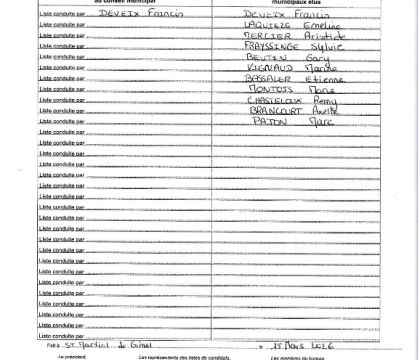 au conseil municipal municipaux élus
Liste conduite par DEVEIX Francis DEVEIX Francis
Liste conduite par LAQUIEZE Emeline
Liste conduite par MERCIER Aristide
Liste conduite par FRAYSSINGE Sylvie
Liste conduite par BEUTIN Gary
Liste conduite par VIGNAUD
Liste conduite par BESSALER Etienne
Liste conduite par MONTOIS Marie
Liste conduite par CHASTELOUX Remy
Liste conduite par BRANCOURT
Liste conduite par PATON Marc
Liste conduite par
Liste conduite par
Liste conduite par
Liste conduite par
Liste conduite par
Liste conduite par
Liste conduite par
Liste conduite par
Liste conduite par
Liste conduite par
Liste conduite par
Liste conduite par
Liste conduite par
Liste conduite par
Liste conduite par
Liste conduite par
Liste conduite par
Liste conduite par
Liste conduite par
Fait à ST Martial de Gimel 15 Mars 2026
Le président, Les représentants des listes de candidats, Les membres du bureau